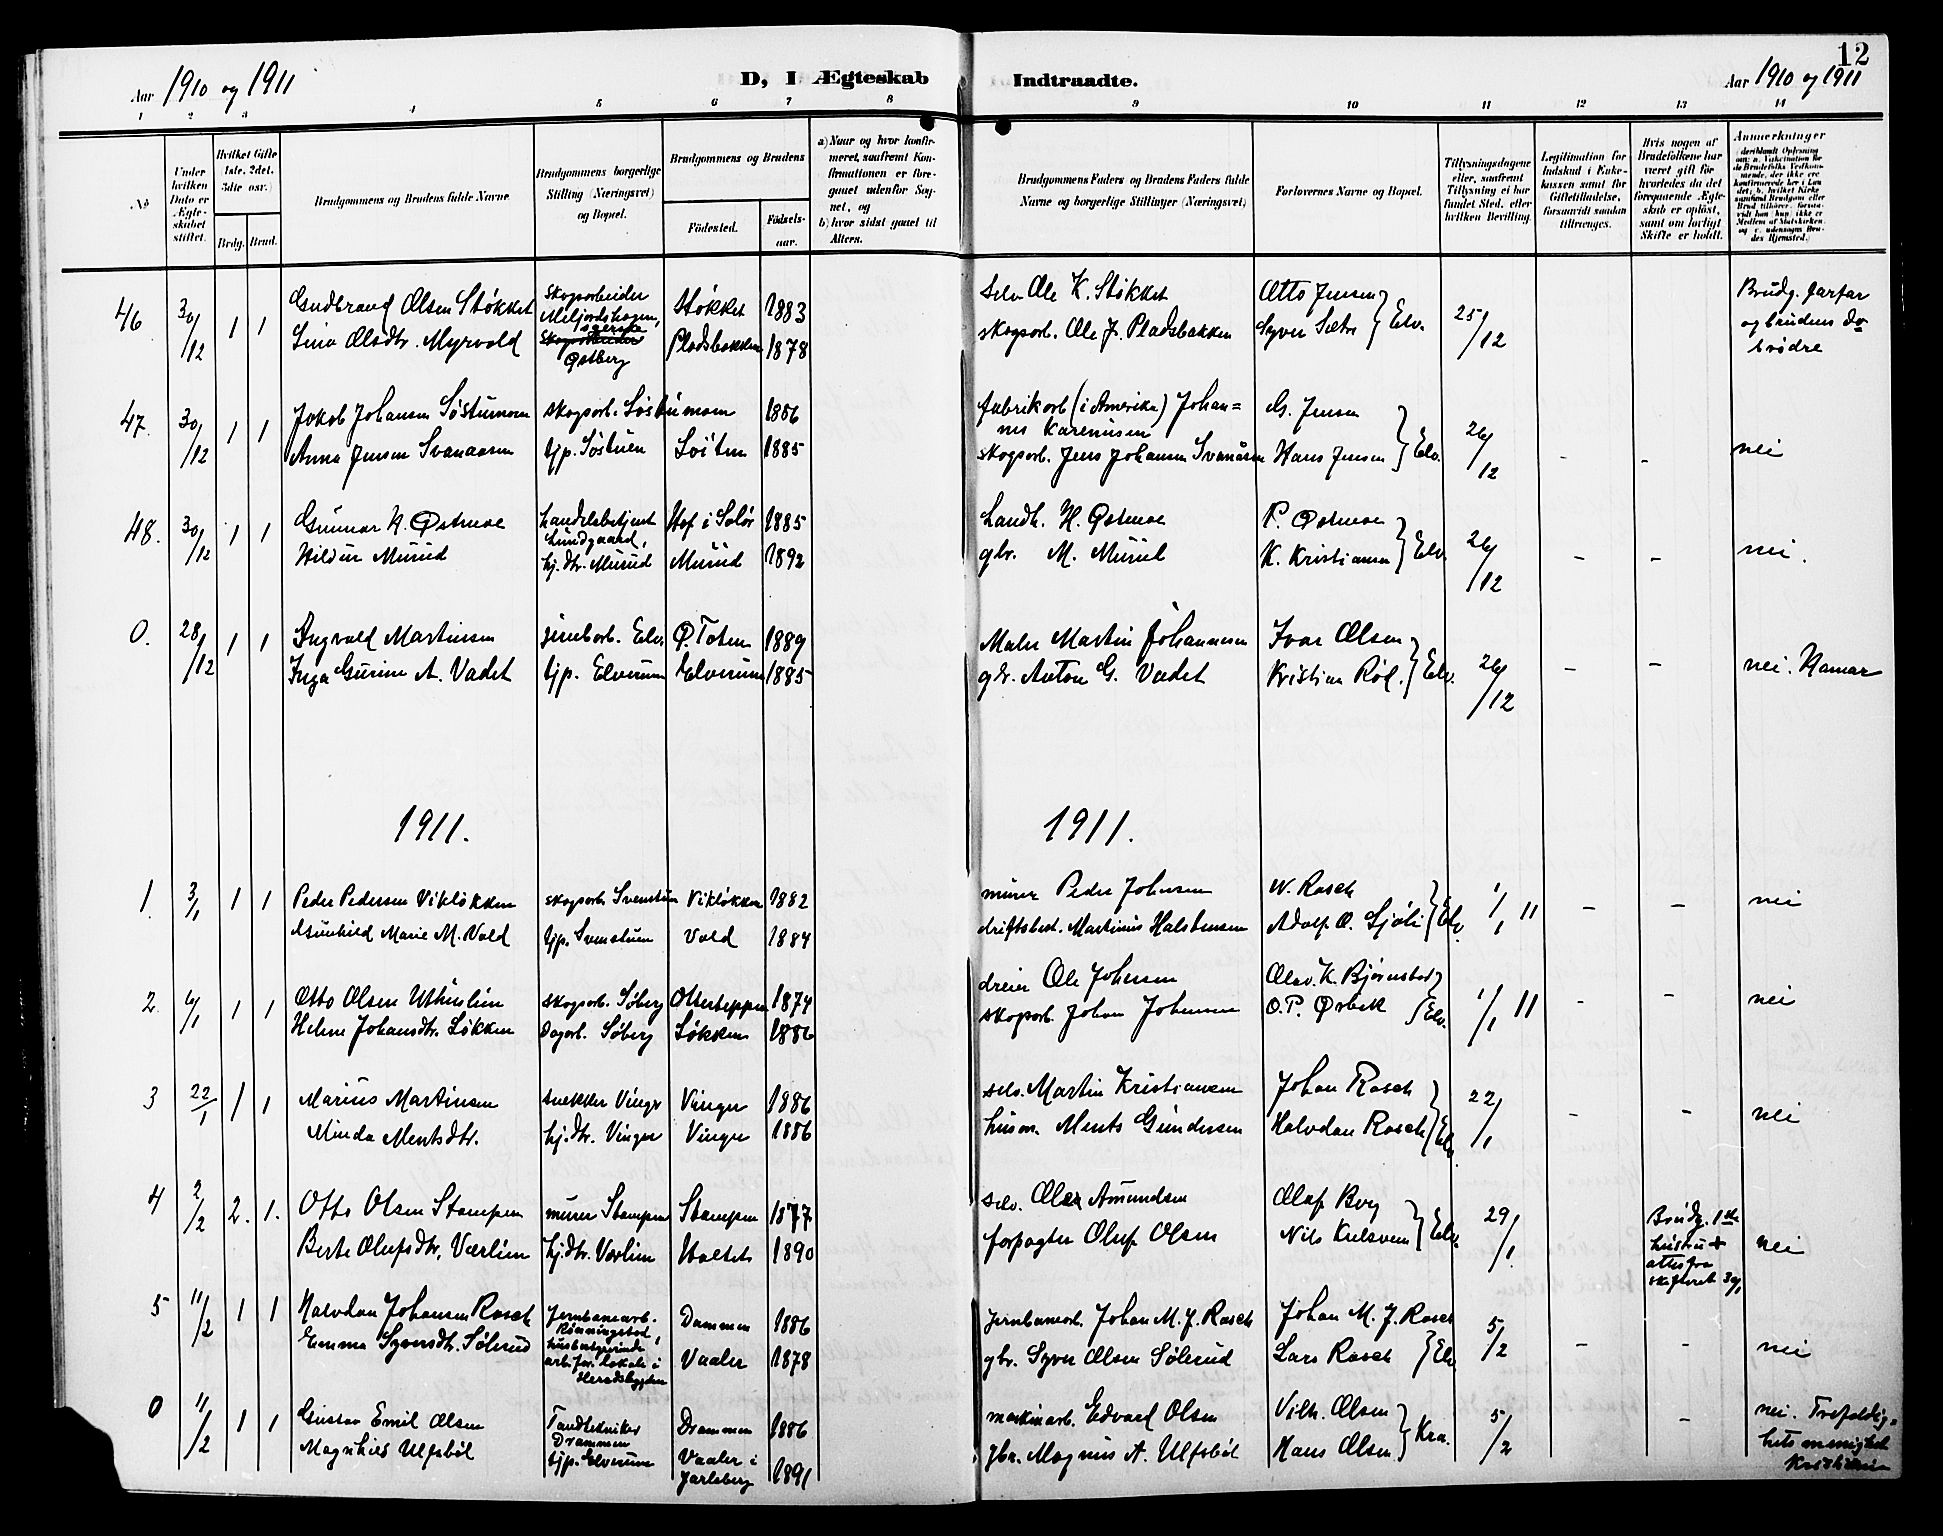 12
Aar 1910 og 1911
D, I Ægteskab Indtraadte.
Aar 1910 og 1911
1 2 3 4 5 6 7 8 9 10 11 12 13 14
No
Under hvilken Dato er Ægteskabet stiftet.
Hvilket Gifte 1ste. 2det. 3die osv.)
Brdg. Brud.
Brudgommens og Brudens fulde Navne
Brudgommens borgerlige Stilling (Næringsvei) og Bopæl.
Brudgommens og Brudens
Fødested. Fødsels-aar.
a) Naar og hvor konfirmeret, saafremt Konfirmationen er foregaaet udenfor Sognet, og
b) hvor sidst gaaet til Alters.
Brudgommens Faders og Brudens Faders fulde Navne og borgerlige Stillinger (Næringsvei)
Forlovernes Navne og Bopæl.
Tillysningsdagene eller, saafremt Tillysning ei har fundet Sted, efter hvilken Bevilling.
Legitimation for Indskud i Enkekassen samt for Giftetilladelse, forsaavidt saadan tiltrænges.
Hvis nogen af Brudefolkene har været gift før hvorledes da det foregaaende Ægteskab er opløst, samt om lovligt Skifte er holdt.
Anmærkninger
46 30/12 1 1 Gudbrand Olsen Støkket Skogsarbeider Støkket 1883 selv. Ole K. Støkket Otto Jensen } Elv. 25/12 Brudg. farfar
Sina Olsdtr. Myrvold Østberg Pladsbakken 1878 skogsarb. Ole J. Pladsbakken Syver Sætre og brudens do
brødre
47. 30/12 1 1 Jokob Johansen Søstumoen skogsarb. Søstumoen 1886 fabrikarb (i Amerika) Johan= G. Jensen } Elv. 26/12 - - nei
nes Karenusen
Anna Jensen Svanaasen tjp. Søstuen 1885 skogsarb. Jens Johansen Svanåsen Hans Jensen
48. 30/12 1 1 Gunnar H. Østmoe handelsbetjent Hof i Solør 1885 Landh. H. Østmoe P. Østmoe } Elv. 26/12 - - nei.
Lundgaard,
Hildur Murud hj. dtr. Murud Murud 1892 gbr. M. Murud K. Kristiansen
0. 28/12 1 1 Ingvald Martinsen Elv. Ø. Toten 1889 Maler Martin Johannesen Ivar Olsen } Elv. 26/12 - - nei. Hamar
Inga Gurine A. Vadet tjp. Elverum Elverum 1885 gbr. Anton G. Vadet Kristian
1911. 1911.
1. 3/1 1 1 Peder Pedersen Vikløkken skogsarb. Svenstuen Vikløkken 1882 murer Peder Johnsen W. Rasch } Elv. 1/1 11 - - nei
Gunhild Marie M. Vold tjp. Svenstuen Vold 1884 driftsbest. Martinius Halstensen Adolf O. Sjøli
2. 6/1 1 1 Otto Olsen skogsarb. Søberg 1874 dreier Ole Johnsen Olav. K. Bjørnstad } Elv. 1/1 11 - - nei
Helene Johansdtr. Løkken Dagarb. Søberg Løkken 1886 skogsarb. Johan Johansen O. P. Ørbek
3 22/1 1 1 Marius Martinsen snekker Vinger Vinger 1886 selv. Martin Kristiansen Johan Rasch } Elv. 22/1 - - nei
Minda Mentsdtr. hj. dtr. Vinger Vinger 1886 husm. Ments Gundersen Halvdan Rasch
4 2/2 2. 1. Otto Olsen Stampen murer Stampen Stampen 1877 selv. Ole Amundsen Olaf Berg } Elv. 29/1. Brudg. 1ste
Berte Olufsdtr. Værlien hj. dtr. Værlien Holtet 1890 forpagter Oluf Olsen Nils Kulsveen hustru + nei
attest fra
skifteret 30/1
5 11/2 1 1 Halvdan Johansen Rasch Jernbanearb. Drammen 1886 Jernbanearb. Johan M. J. Rasch Johan M. J. Rasch } Elv. 5/2 - - nei
Emma Syversdtr. Sølerud husbestyrerinde Vaaler 1878 gbr. Syver Olsen Sølerud Lars Rasch
arb. for. lokale i
Heradsbygden
0 11/2 1 1 Gustav Emil Olsen Tandtekniker Drammen 1886 maskinarb. Edvard Olsen Vilh. Olsen } Kra. 5/2 - nei. Trefoldig=
Drammen
Magnhild Ulfsbøl tjp. Elverum Vaaler i 1891 gbr. Magnus A. Ulfsbøl Hans Olsen hets menighet
Jarlsberg Kristiania